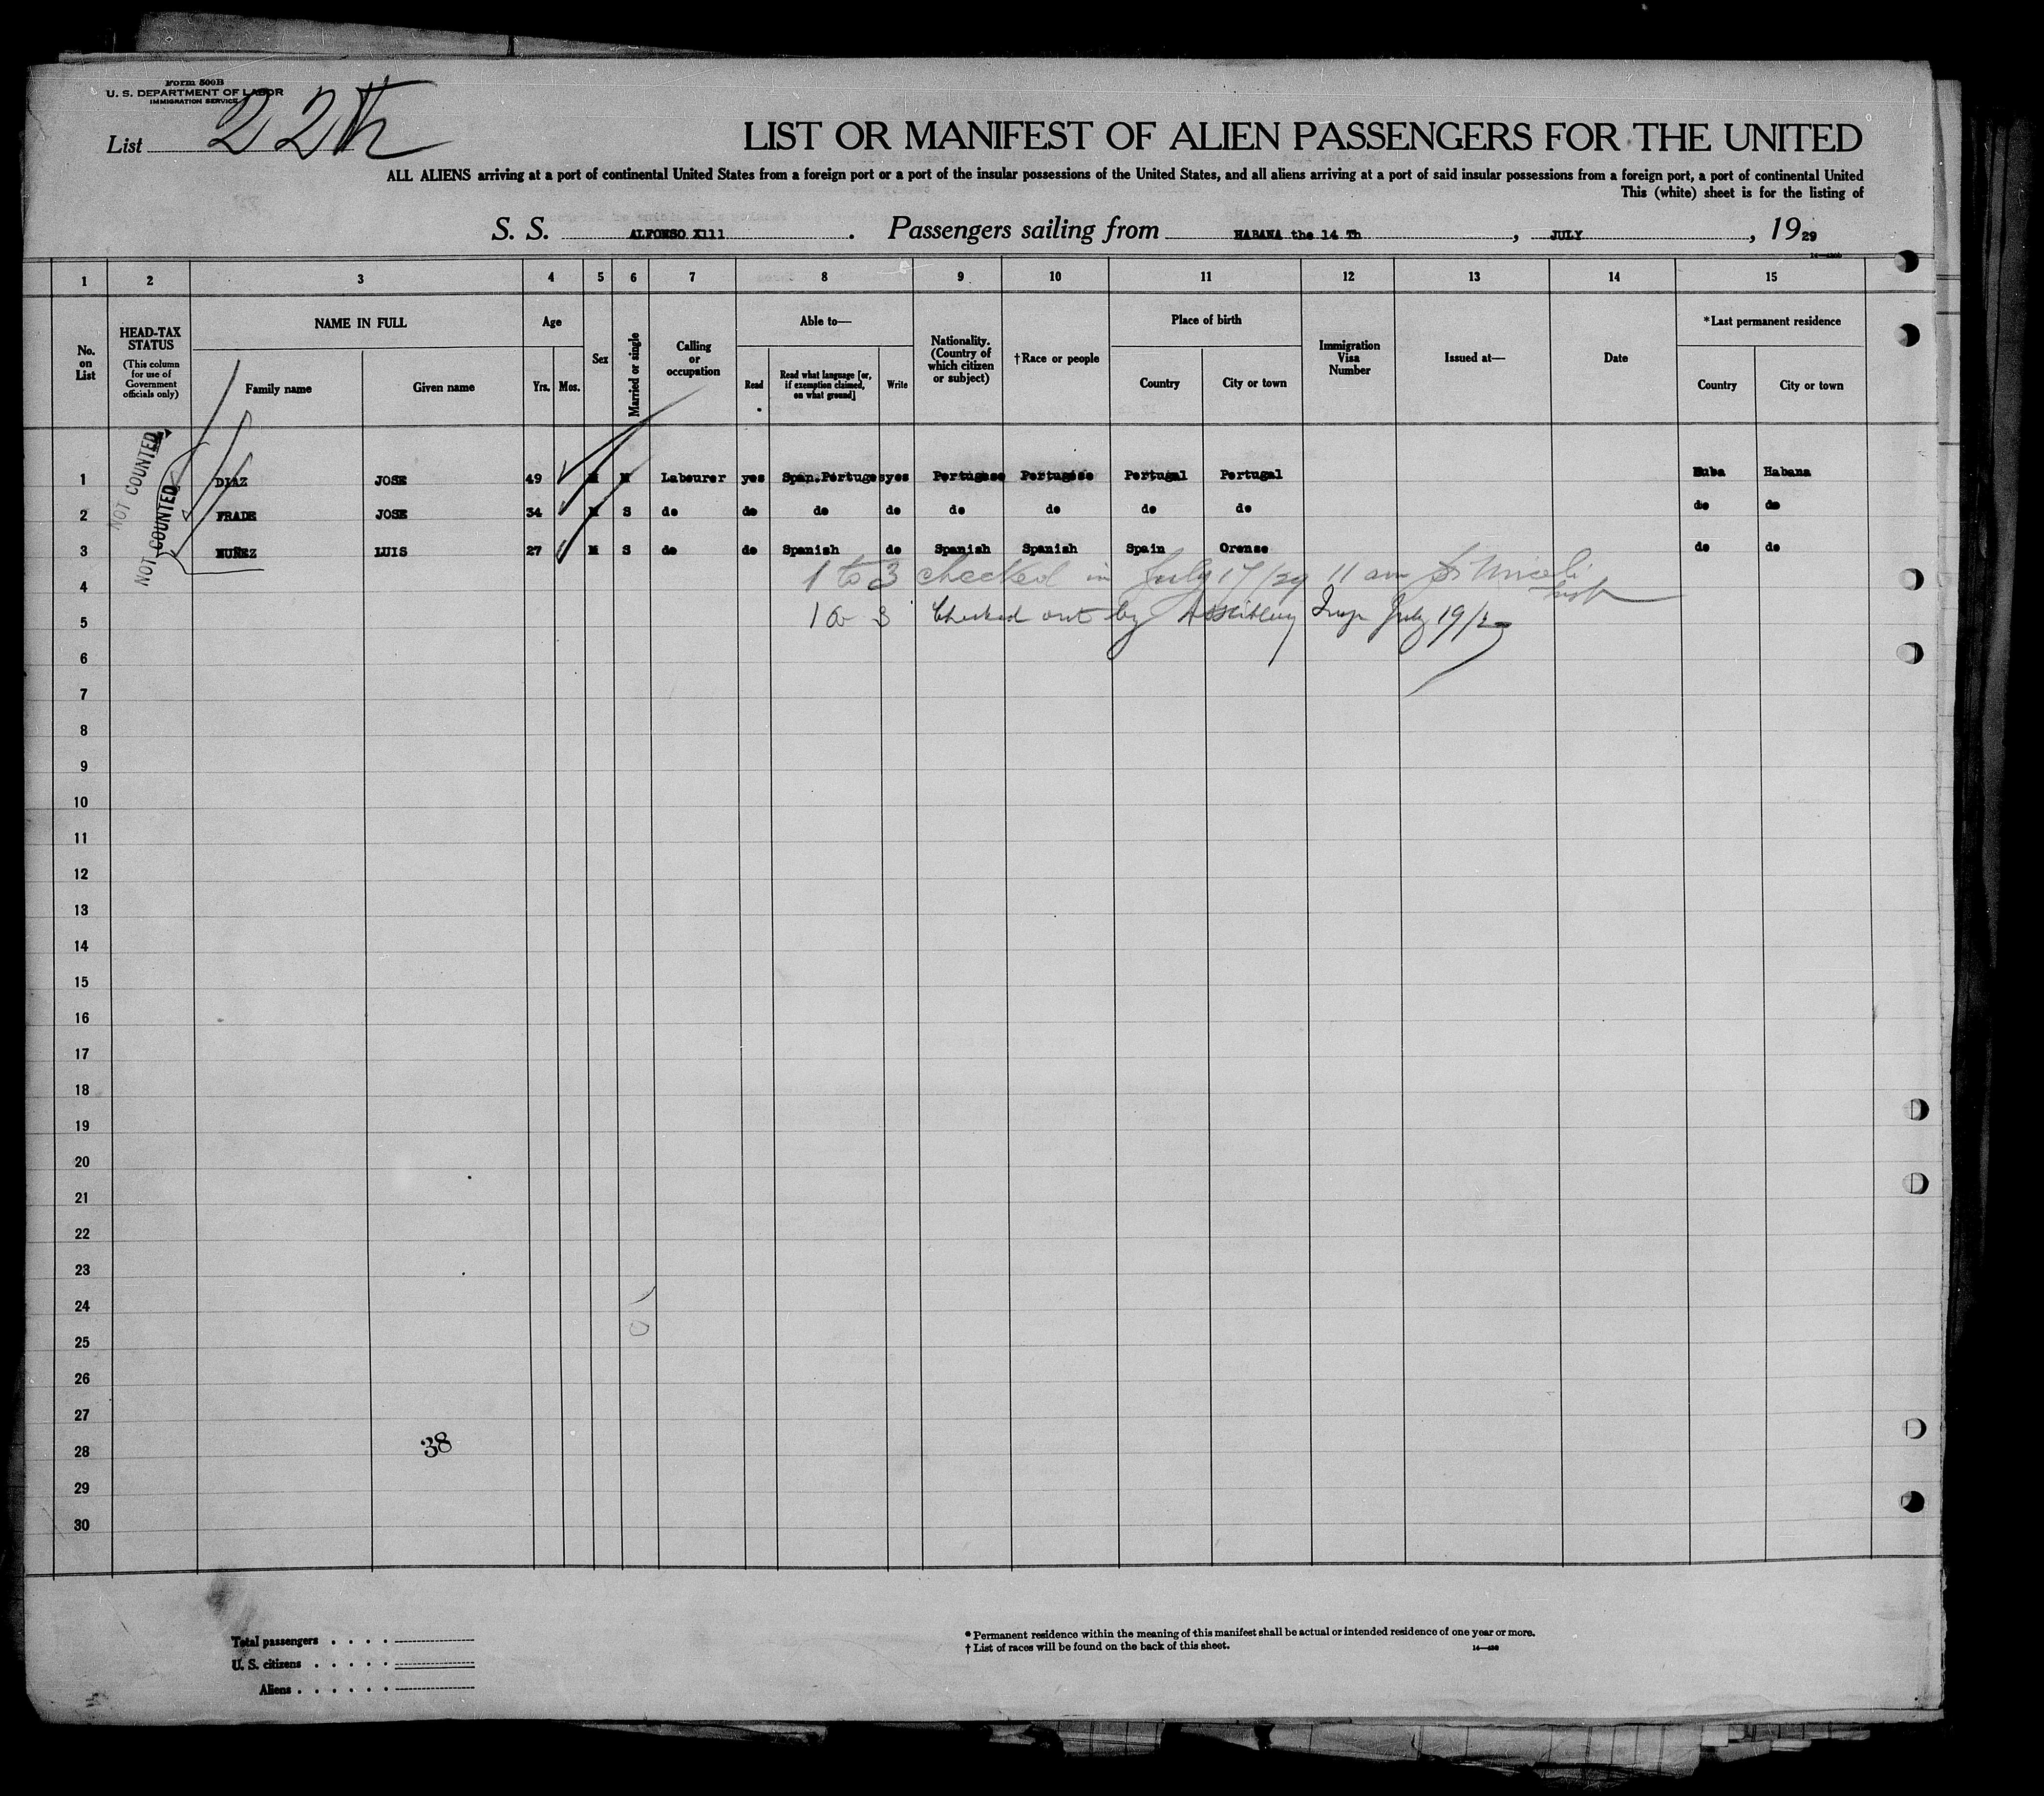 Form 500B
U. S. DEPARTMENT OF LABOR
IMMIGRATION SERVICE
List 22th
LIST OR MANIFEST OF ALIEN PASSENGERS FOR THE UNITED
ALL ALIENS arriving at a port of continental United States from a foreign port or a port of the insular possessions of the United States, and all aliens arriving at a port of said insular possessions from a foreign port, a port of continental United
This (white) sheet is for the listing of
S. S. ALFONSO X111 . Passengers sailing from HABANA the 14 Th , JULY , 1929
1 2 3 4 5 6 7 8 9 10 11 12 13 14 15
No. on List
HEAD-TAX STATUS
(This column for use of Government officials only)
NAME IN FULL
Family name Given name
Age
Yrs. Mos.
Sex
Married or single
Calling or occupation
Able to—
Read
Read what language [or, if exemption claimed, on what ground]
Write
Nationality. (Country of which citizen or subject)
†Race or people
Place of birth
Country City or town
Immigration Visa Number
Issued at—
Date
*Last permanent residence
Country City or town
NOT COUNTED
NOT COUNTED
1 DIAZ JOSE 49 M M Labourer yes Span.Portuges yes Portugese Portugése Portugal Portugal Kuba Habana
2 FRADE JOSE 34 M S do do do do do do do do do do
3 NUÑEZ LUIS 27 M S do do Spanish do Spanish Spanish Spain Orense do do
1 to 3 checked in July 17/29 11 am
4
1 to 3 Checked out by Insp July 19/29
5
6
7
8
9
10
11
12
13
14
15
16
17
18
19
20
21
22
23
24
25
26
27
38
28
29
30
Total passengers . . . .
U. S. citizens . . . . .
Aliens . . . . . .
* Permanent residence within the meaning of this manifest shall be actual or intended residence of one year or more.
† List of races will be found on the back of this sheet.